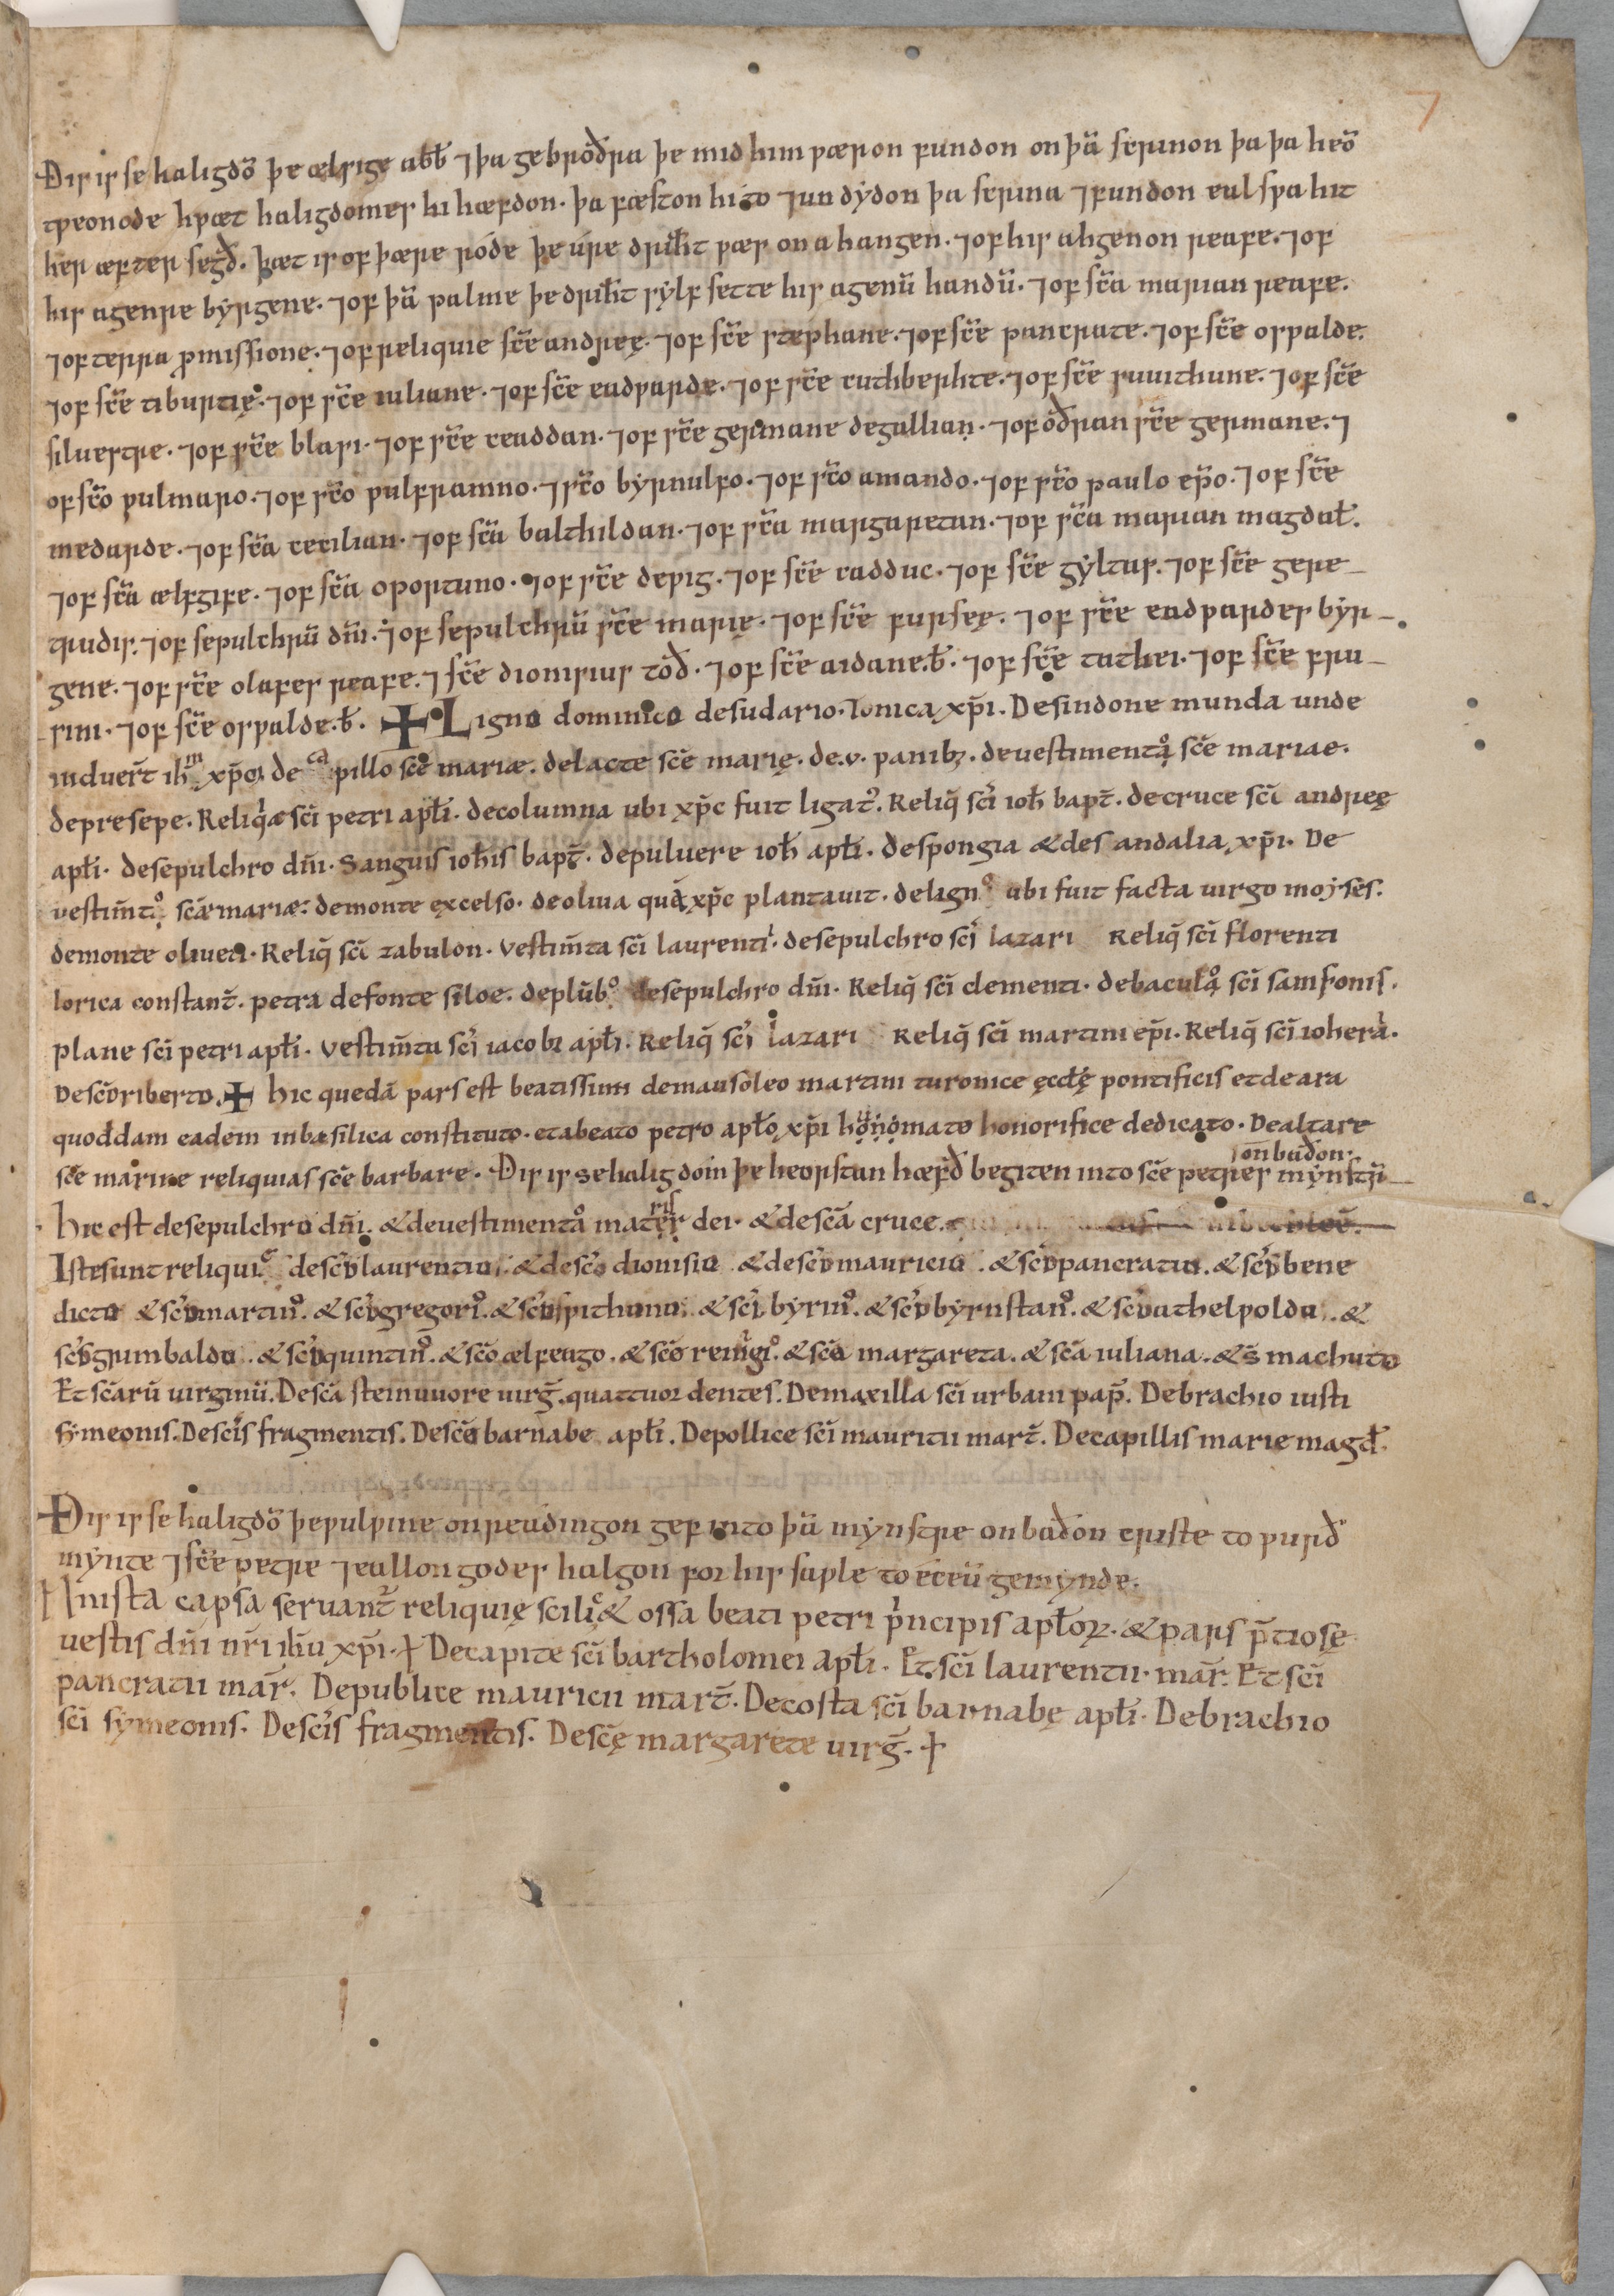 7
Ðis is se haligdō þe ælfsige abb̄ ⁊ þa gebroðra þe mid him wæron fundon on þā scrinon þa þa heō
tweonode hwæt haligdomes hi hæfdon. þa fæston hi to ⁊ undydon þa scrina ⁊ fundon eal swa hit
her æfter segð. þæt is of þære róde þe úre driht̄ wæs on ahangen. ⁊ of his ahgenon reafe. ⁊ of
his agenre byrgene. ⁊ of þā palme þe driht̄ sylf sette his agenū handū. ⁊ of sc̄a marian reafe.
⁊ of terra ꝓmissione. ⁊ of reliquie sc̄e andreę. ⁊ of sc̄e stephane. ⁊ of sc̄e pancrate. ⁊ of sc̄e oswalde.
⁊ of sc̄e tiburtię. ⁊ of sc̄e iuliane. ⁊ of sc̄e eadwarde. ⁊ of sc̄e cuthberhte. ⁊ of sc̄e suuithune. ⁊ of sc̄e
siluestre. ⁊ of sc̄e blasi. ⁊ of sc̄e ceaddan. ⁊ of sc̄e germane degallian. ⁊ of oðran sc̄e germane. ⁊
of sc̄o walmaro. ⁊ of sc̄o wulframno. ⁊ sc̄o byrnulfo. ⁊ of sc̄o amando. ⁊ of sc̄o paulo ep̄o. ⁊ of sc̄e
medarde. ⁊ of sc̄a cecilian. ⁊ of sc̄a balthildan. ⁊ of sc̄a margaretan. ⁊ of sc̄a marian magdal̄.
⁊ of sc̄a ælfgife. ⁊ of sc̄a oportuno. ⁊ of sc̄e dewig. ⁊ of sc̄e cadduc. ⁊ of sc̄e gyltas. ⁊ of sc̄e gere-
trudis. ⁊ of sepulchrū dn̄i. ⁊ of sepulchrū sc̄e marię. ⁊ of sc̄e furseę. ⁊ of sc̄e eadwardes byr-
gene. ⁊ of sc̄e olafes reafe. ⁊ sc̄e dionisius toð. ⁊ of sc̄e aidane. b̄. ⁊ of sc̄e tathei. ⁊ of sc̄e pru-
sini. ⁊ of sc̄e oswalde. b̄. ✠ Ligno dominico de sudario. Tonica xp̄i. De sindone munda unde
induer̄t ih̄m xp̄m de capillo sc̄e mariæ. de lacte sc̄e marię. de .v. panibȝ. de uestimento sc̄e mariae.
de presepe. Reliq̓æ sc̄i petri apl̄i. de columna ubi xp̄c fuit ligat᾽. Reliq̄ sc̄i ioh̄ bapt̄. de cruce sc̄i andreę
apl̄i. de sepulchro dn̄i. Sanguis ioh̄is bapt̄. de puluere ioh̄ apl̄i. de spongia & de sandalia xp̄i. De
uestim̄to sc̄æ mariæ. de monte excelso. de oliua quā xp̄c plantauit. de ligno ubi fuit facta uirgo moyses.
de monte oliueti. Reliq̄ sc̄i zabulon. Vestim̄ta sc̄i laurenti. de sepulchro sc̄i lazari Reliq̄ sc̄i florenti
lorica constant̄. petra de fonte siloe. de plūbo de sepulchro dn̄i. Reliq̄ sc̄i clementi. de baculo sc̄i samsonis.
plane sc̄i petri apl̄i. Vestim̄ta sc̄i iacobi apl̄i. Reliq̄ sc̄i lazari Reliq̄ sc̄i martini ep̄i. Reliq̄ sc̄i
De sc̄o riberto. ✠ hic quedā pars est beatissimi de mausoleo martini turonice ęccl̄ę pontificis et de ara
quoddam eadem in basilica constituto. et a beato petro apl̄o xp̄i honomato honorifice dedicato. De altare
on baðon.
sc̄e marine reliquias sc̄e barbare. Ðis is se haligdom þe heorstan hæfð begiten into sc̄e petres mynstr̄
hic est de sepulchro dn̄i. & de uestimento matris dei. & de sc̄a cruce.
Iste sunt reliquię de sc̄o laurentio & de sc̄o dionisio & de sc̄o mauricio. & sc̄o pancratio. & sc̄o bene
dicto & sc̄o martino. & sc̄o gregorio. & sc̄o swithuno. & sc̄i byrino. & sc̄o byrnstano. & sc̄o athelwoldo. &
sc̄o grimbaldo. & sc̄o quintino. & sc̄o ælfeago. & sc̄o remigio. & sc̄a margareta. & sc̄a iuliana. & s̄ machuto
Et sc̄arū uirginū. De sc̄a stemuuore uirḡ. quattuor dentes. De maxilla sc̄i urbani pap̄. De brachio iusti
symeonis. De sc̄is fragmentis. De sc̄o barnabe apl̄i. De pollice sc̄i mauritii mart̄. De capillis marie magd̄.
Ðis is se haligdō þe wulwine on readingon gef into þā mynstre on baðon criste to wurð
mynte ⁊ sc̄e petre ⁊ eallon godes halgon for his saule to éceū gemynde.
✝ In ista capsa seruant̄ reliquię scilic& ossa beati petri p̓ncipis apl̄oꝝ. & pars p̄tiosę
uestis dn̄i nr̄i ih̄u xp̄i. ✝ De capite sc̄i bartholomei apl̄i. Et sc̄i laurentii. mar̄. Et sc̄i
pancratii mar̄. De publice mauricii mart̄. De costa sc̄i barnabę apl̄i. De brachio
sc̄i symeonis. De sc̄is fragmentis. De sc̄ę margarete uirḡ. ✝